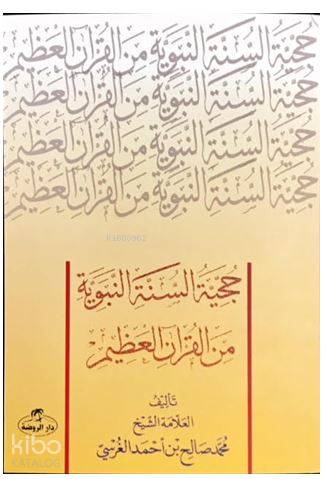 حُجِّيَّةُ السُّنَّةِ النَّبَوِيَّةِ مِنَ القُرآنِ العَظِيمِ
حُجِّيَّةُ السُّنَّةِ النَّبَوِيَّةِ مِنَ القُرآنِ العَظِيمِ
حُجِّيَّةُ السُّنَّةِ النَّبَوِيَّةِ مِنَ القُرآنِ العَظِيمِ
حُجِّيَّةُ السُّنَّةِ النَّبَوِيَّةِ مِنَ القُرآنِ العَظِيمِ
حُجِّيَّةُ السُّنَّةِ النَّبَوِيَّةِ
مِنَ القُرآنِ العَظِيمِ
تَأليفُ
العَلَّامَة الشَّيْخ
مُحَمَّد صَالِح بن أحمَد الغُرسِيّ
دار الروضة
kibo
KATALOG